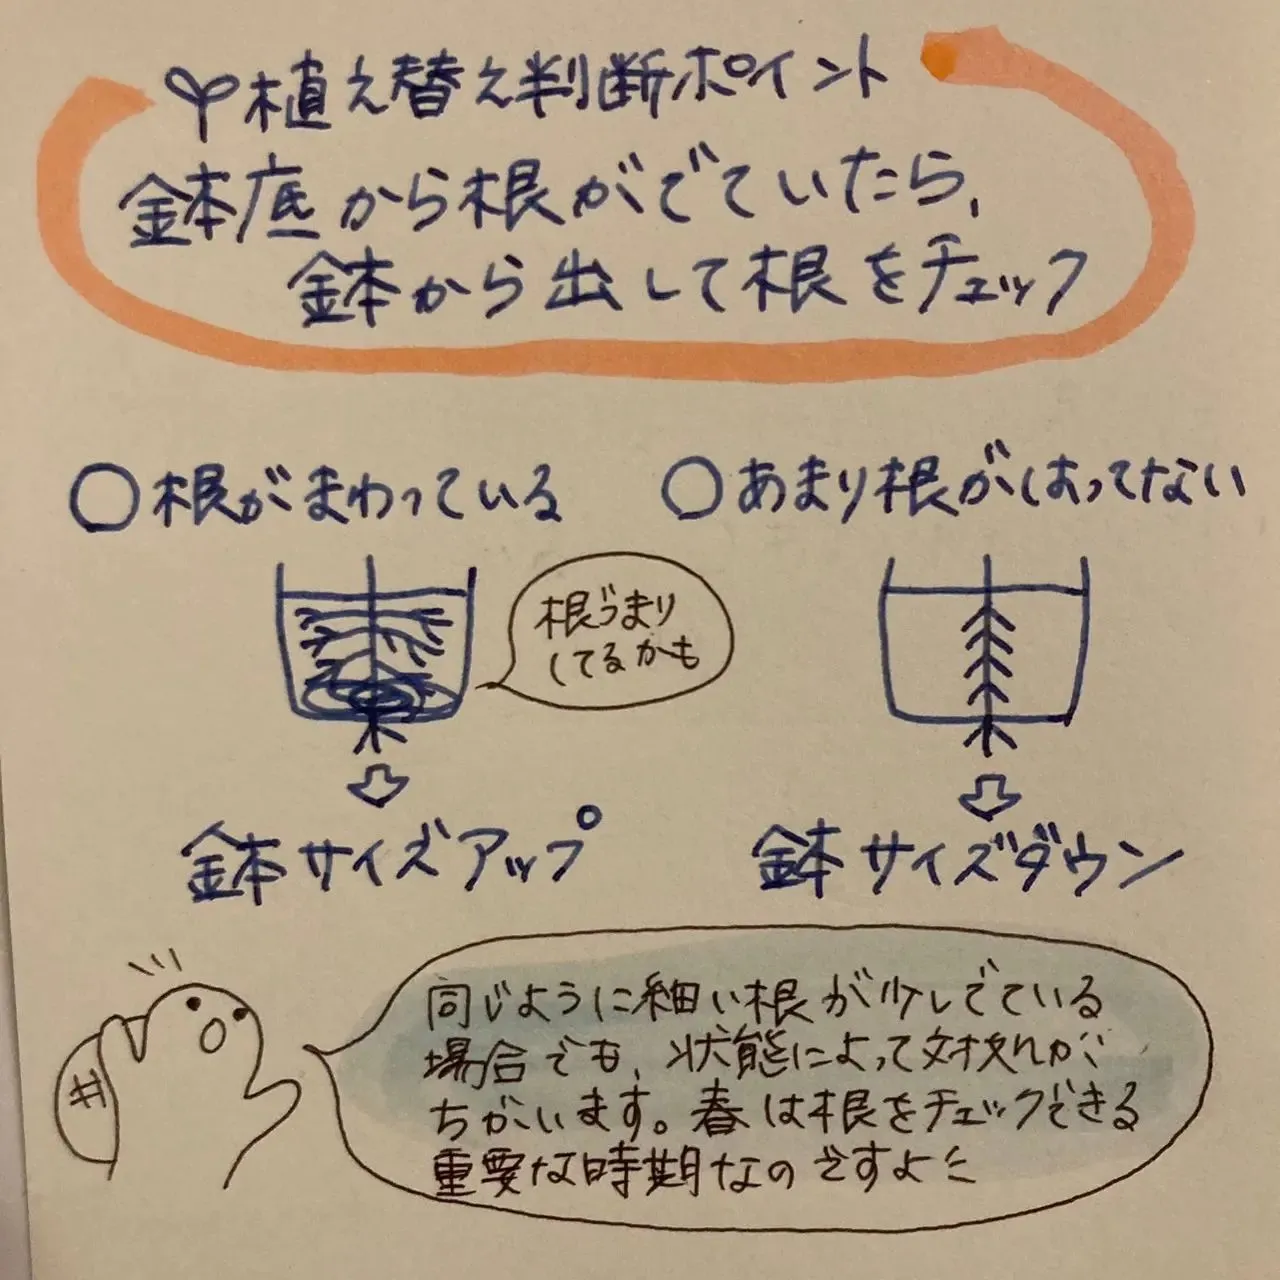 植え替え判断ポイント
鉢底から根がでていたら、
鉢から出して根をチェック
○根がまわっている
○あまり根がはってない
根づまり
してるかも
鉢サイズアップ
鉢サイズダウン
同じように細い根が少しでている
場合でも、状態によって対処が
ちがいます。春は根をチェックできる
重要な時期なのですよ